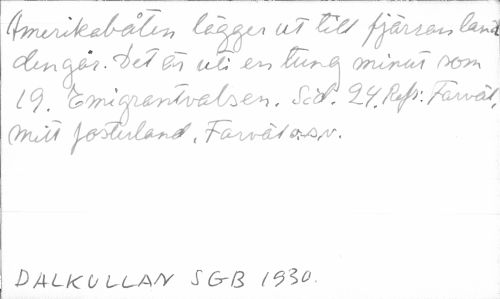 Amerikabåten lägger ut till fjärran land
den går. Det är uti en tung minut som
19. Emigrantvalsen. Sid. 24. Refr: Farväl,
mitt fosterland, Farväl o.s.v.
DALKULLAN SGB 1930.